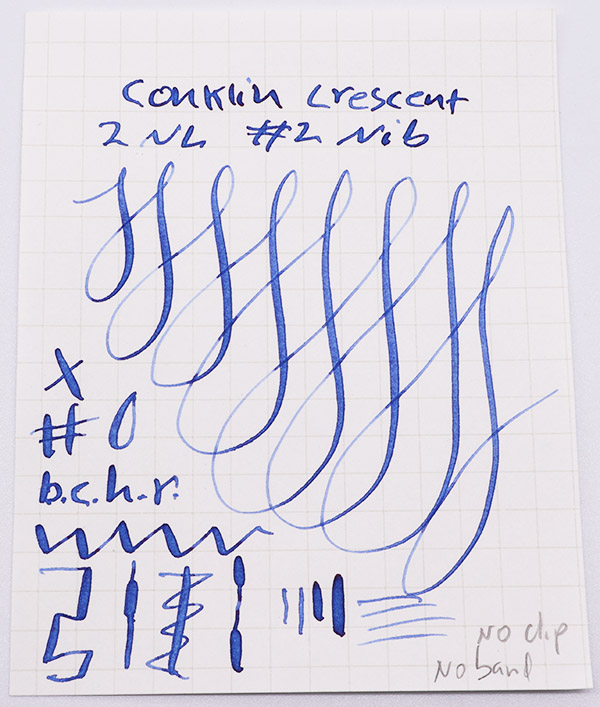 Conklin Crescent
2 NL #2 Nib
X
#0
b.c.h.r.
No clip
No band